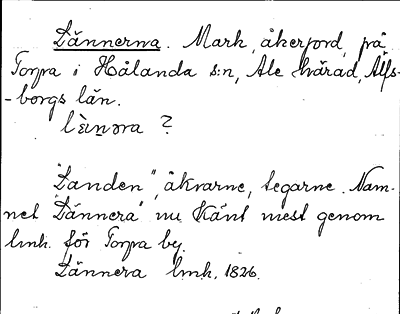 Lännerna. Mark, åkerjord, på
Torpa i Hålanda s:n, Ale härad, Älfs-
-borgs län.
lὲinəra ?
"Landen", åkrarne, tegarne. Nam-
net "Lännera" nu känt mest genom
lmk. för Torpa by.
Lännera lmk. 1826.